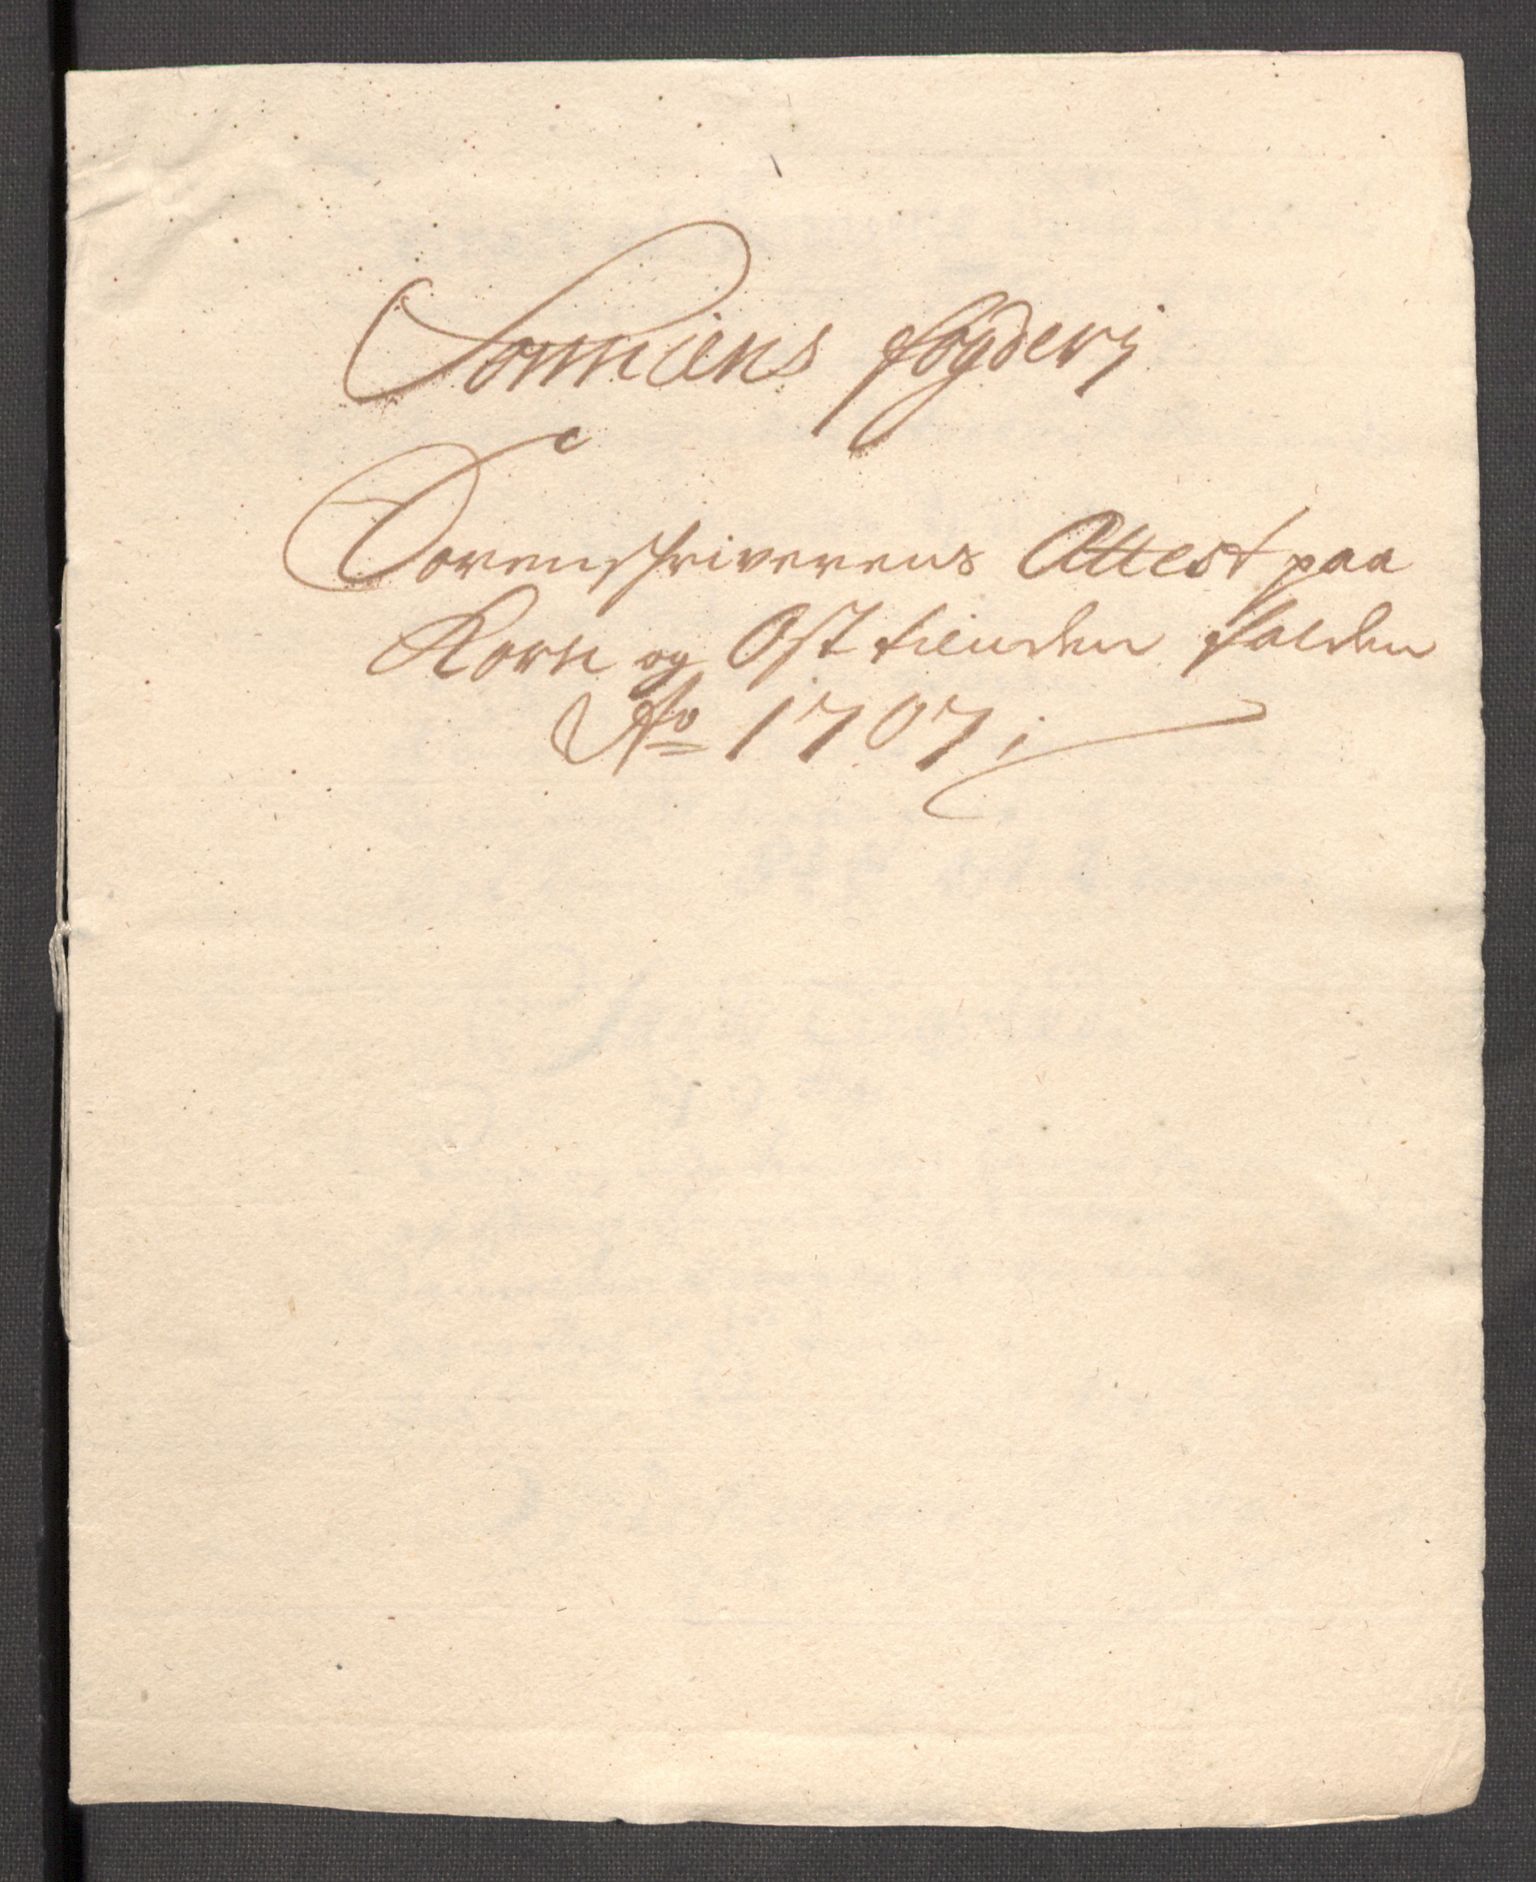 Sonnens fogderj
Sorenschriverens Attest paa
Korn og Ost tienden falden
Ao 1707;